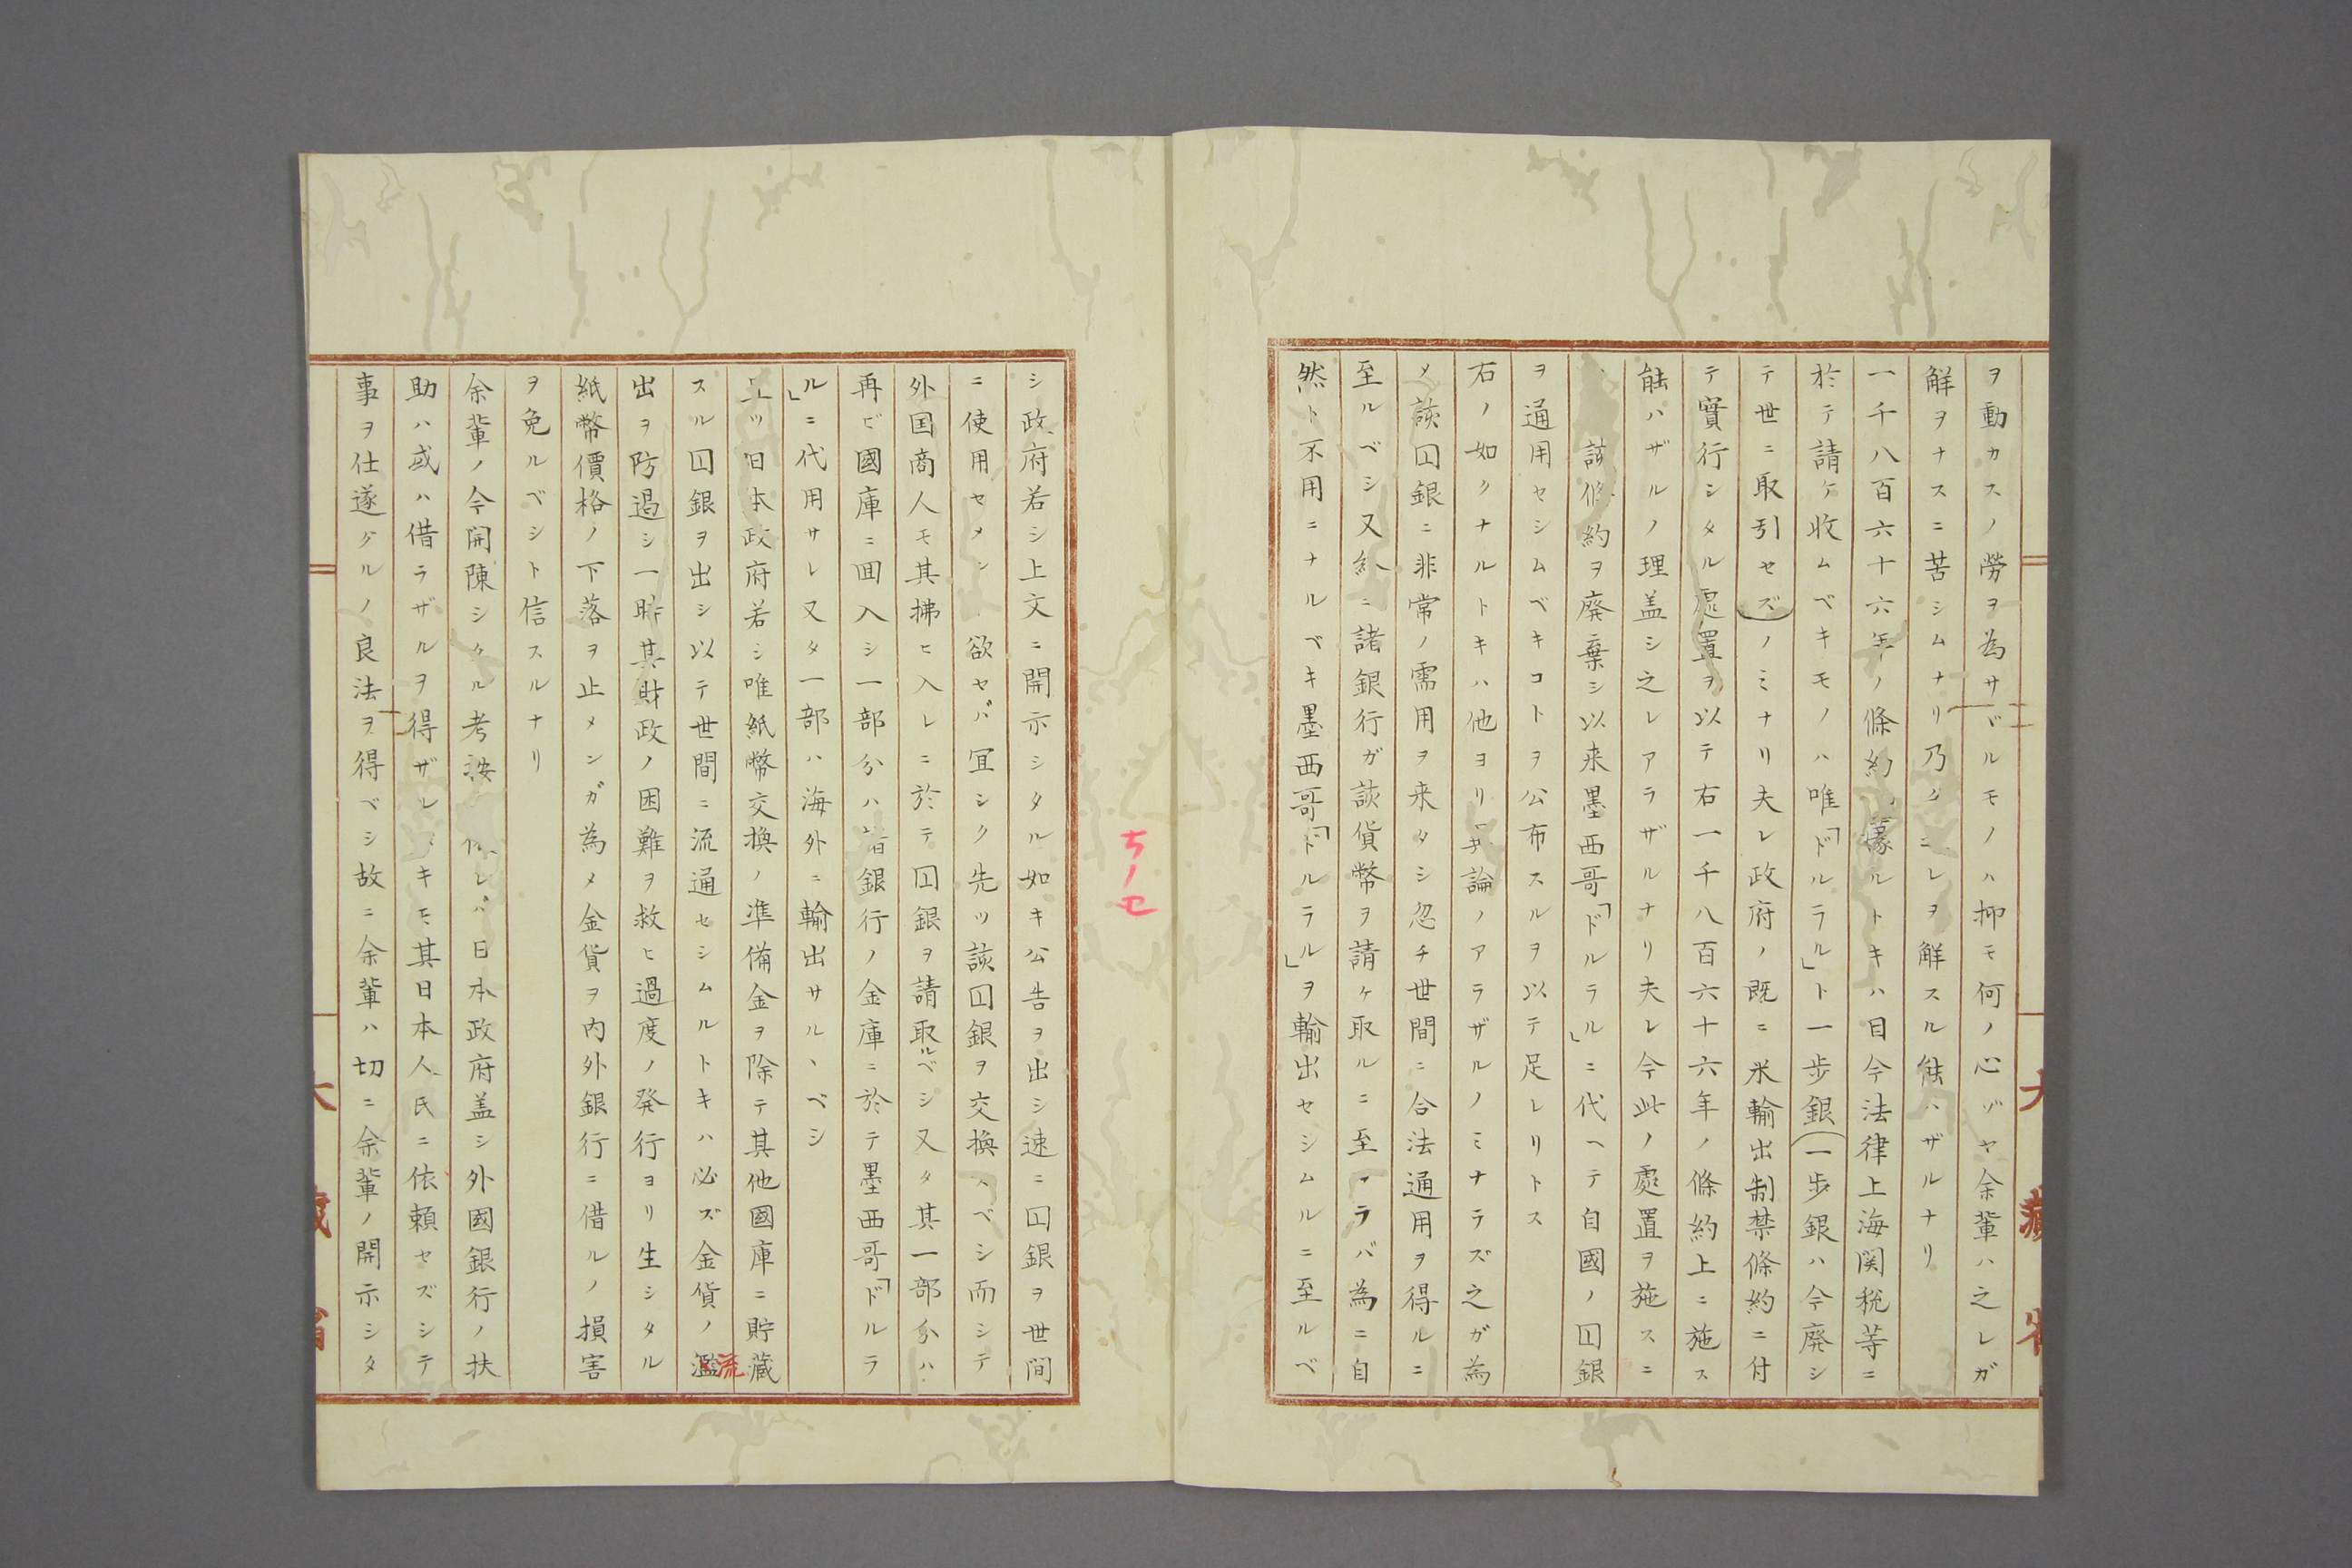 ヲ動カスノ勞ヲ為サヾルモノハ抑モ何ノ心ゾヤ余輩ハ之レガ
解ヲナスニ苦シムナリ乃チニレヲ解スル能ハザルナリ
一千八百六十六年ノ條約ニ據ルトキハ目今法律上海関税等ニ
於テ請ケ收ムベキモノハ唯「ドルラル」ト一歩銀(一歩銀ハ今廃シ
テ世ニ取引セズ)ノミナリ夫レ政府ノ既ニ米輸出制禁條約ニ付
テ實行シタル處置ヲ以テ右一千八百六十六年ノ條約上ニ施ス
能ハザルノ理盖シ之レアラザルナリ夫レ今此ノ處置ヲ施スニ
該條約ヲ廢棄シ以来墨西哥「ドルラル」ニ代ヘテ自國ノ囙銀
ヲ通用セシムベキコトヲ公布スルヲ以テ足レリトス
右ノ如クナルトキハ他ヨリ論ノアラザルノミナラズ之ガ為
メ該囙銀ニ非常ノ需用ヲ来タシ忽チ世間ニ合法通用ヲ得ルニ
至ルベシ又紛ニ諸銀行ガ該貨幣ヲ請ケ取ルニ至ラバ為ニ自
然ト不用ニナルベキ墨西哥「ドルラル」ヲ輸出セシムルニ至ルベ
大藏省
ちノ七
シ政府若シ上文ニ開示シタル如キ公告ヲ出シ速ニ囙銀ヲ世間
ニ使用セメン欲セバ宜シク先ツ該囙銀ヲ交換スベシ而シテ
外国商人モ其拂ヒ入レニ於テ囙銀ヲ請取ルベシ又タ其一部分ハ
再ビ國庫ニ囬入シ一部分ハ銀行ノ金庫ニ於テ墨西哥「ドルラ
ル」ニ代用サレ又タ一部ハ海外ニ輸出サルヽベシ
且ツ日本政府若シ唯紙幣交換ノ準備金ヲ除テ其他國庫ニ貯藏
スル囙銀ヲ出シ以テ世間ニ流通セシムルトキハ必ズ金貨ノ濫流
出ヲ防遏シ一時其財政ノ困難ヲ救ヒ過度ノ発行ヨリ生シタル
紙幣價格ノ下落ヲ止メンガ為メ金貨ヲ内外銀行ニ借ルノ損害
ヲ免ルベシト信スルナリ
余輩ノ今開陳シタル考按ニ依レバ日本政府盖シ外國銀行ノ扶
助ハ或ハ借ラザルヲ得ザルベキモ其日本人民ニ依頼セズシテ
事ヲ仕遂グルノ良法ヲ得ベシ故ニ余輩ハ切ニ余輩ノ開示シタ
大藏省